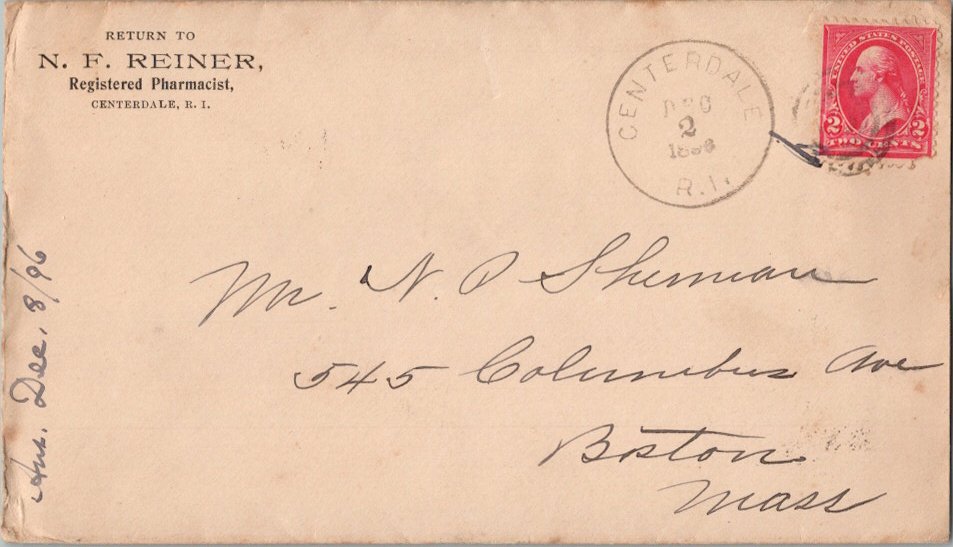 RETURN TO
N. F. REINER,
Registered Pharmacist,
CENTERDALE, R. I.
CENTERDALE
DEC
2
1896
R.I.
UNITED STATES POSTAGE
2 2
TWO CENTS
Mr. N. P Sherman
545 Columbus Ave
Boston
Mass
Ans. Dec. 8/96